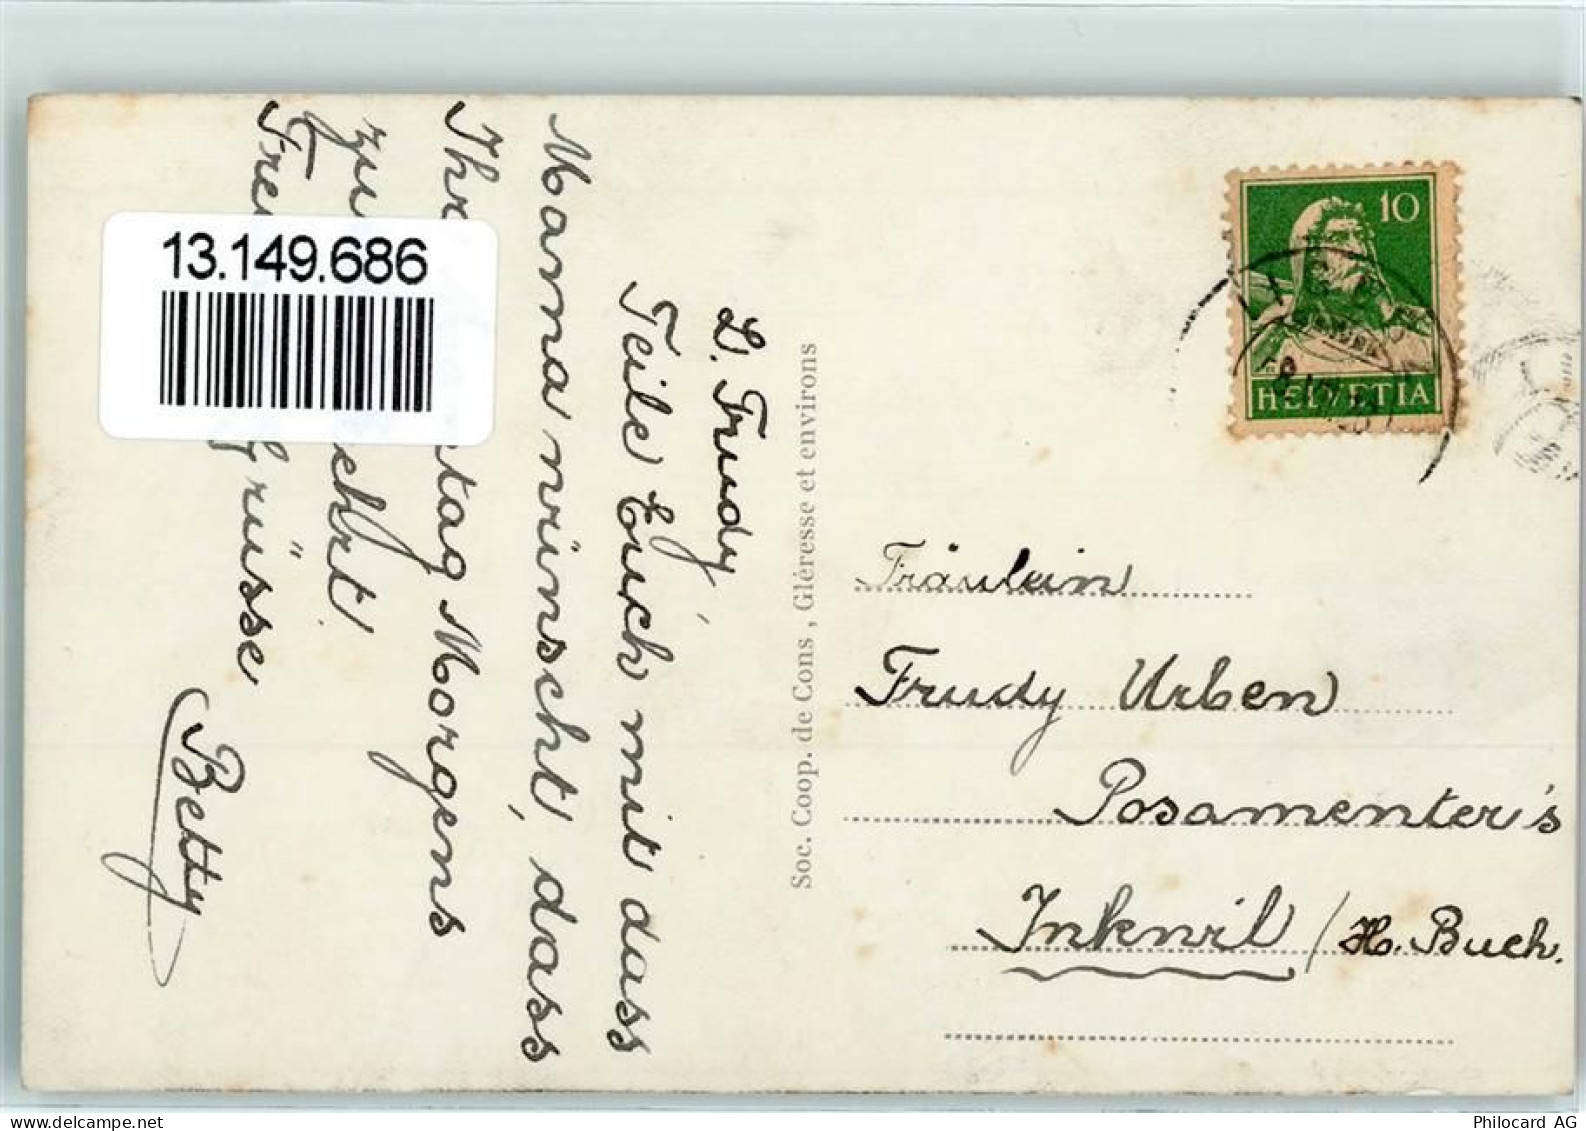 L. Trudy,
Teile Euch mit dass
Mamma wünscht, dass
Ihr tag Morgens
zu kehrt.
Fre grüsse
Betty
13.149.686
Soc. Coop. de Cons, Gléresse et environs
10
HELVETIA
Fräulein
Trudy Urben
Posamenter's
Inkwil / H. Buch.
Philocard AG